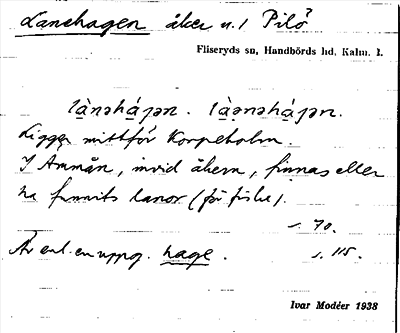 Lanehagen åker n. 1 Pilö?
Fliseryds sn, Handbörds hd, Kalm. l.
là̱nəhá̱ɟən. là̱ənəhá̱ɟən.
Ligger mittför Korpeholm.
I Ammån, invid åkern, finnas eller
ha funnits lanor (för fiske).
s. 70.
Är enl. en uppg. hage. s. 115.
Ivar Modéer 1938